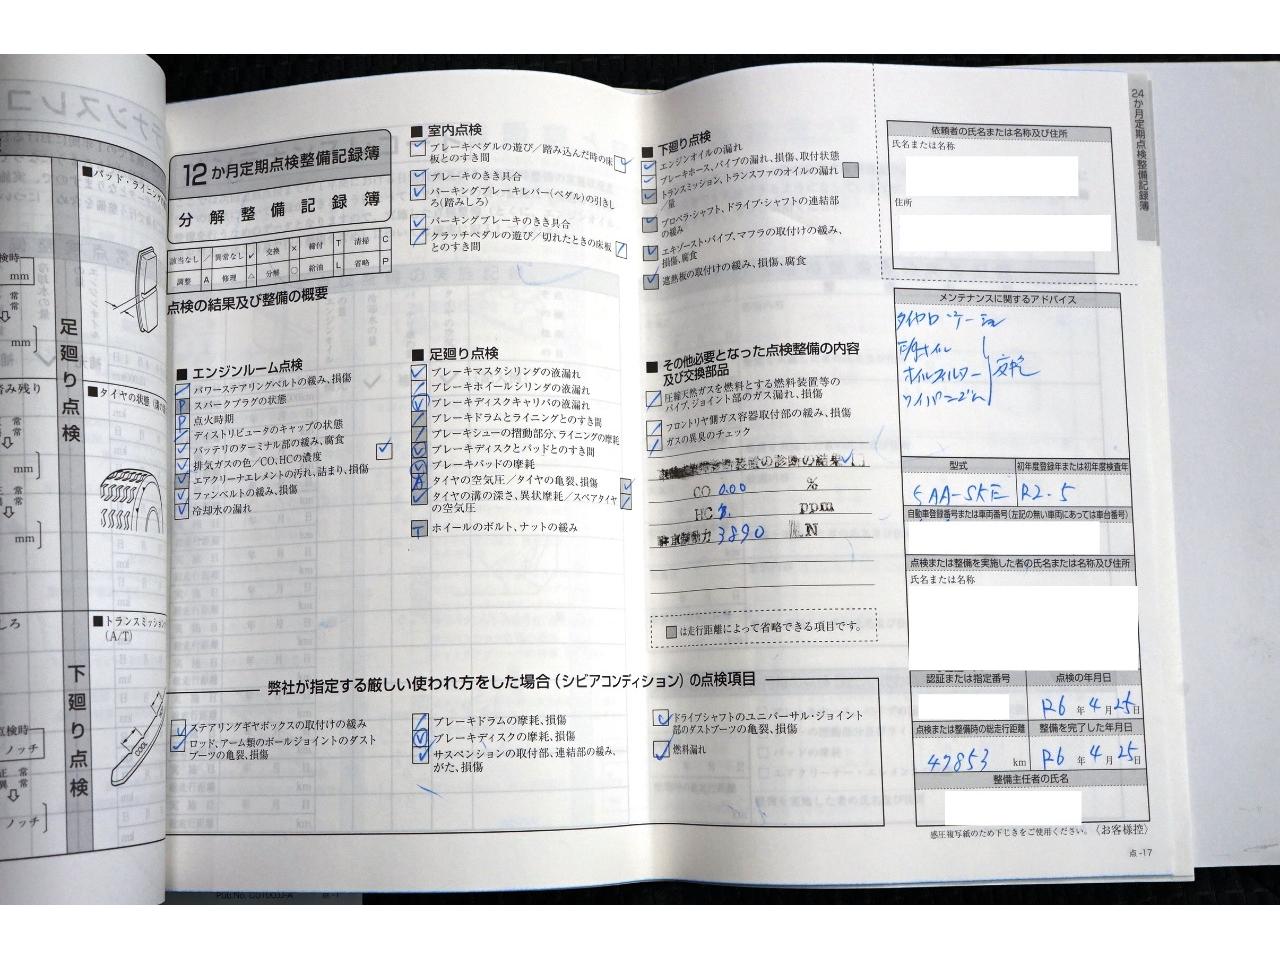 テナンスレコ
■パッド・ライニング
足廻り点検
mm
mm
■タイヤの状態
mm
■トランスミッション
(A/T)
下廻り点検
ノッチ
ノッチ
12か月定期点検整備記録簿
分解整備記録簿
該当なし / 異常なし ✓ 交換 × 締付 T 清掃 C
調整 A 修理 △ 分解 ○ 給油 L 省略 P
点検の結果及び整備の概要
■エンジンルーム点検
パワーステアリングベルトの緩み、損傷
スパークプラグの状態
点火時期
ディストリビュータのキャップの状態
バッテリのターミナル部の緩み、腐食
排気ガスの色/CO、HCの濃度
エアクリーナエレメントの汚れ、詰まり、損傷
ファンベルトの緩み、損傷
冷却水の漏れ
■室内点検
ブレーキペダルの遊び/踏み込んだ時の床
板とのすき間
ブレーキのきき具合
パーキングブレーキレバー(ペダル)の引きし
ろ(踏みしろ)
パーキングブレーキのきき具合
クラッチペダルの遊び/切れたときの床板
とのすき間
■足廻り点検
ブレーキマスタシリンダの液漏れ
ブレーキホイールシリンダの液漏れ
ブレーキディスクキャリパの液漏れ
ブレーキドラムとライニングとのすき間
ブレーキシューの摺動部分、ライニングの摩耗
ブレーキディスクとパッドとのすき間
ブレーキパッドの摩耗
タイヤの空気圧/タイヤの亀裂、損傷
タイヤの溝の深さ、異状摩耗/スペアタイヤ
の空気圧
ホイールのボルト、ナットの緩み
■下廻り点検
エンジンオイルの漏れ
ブレーキホース、パイプの漏れ、損傷、取付状態
トランスミッション、トランスファのオイルの漏れ
/量
プロペラ・シャフト、ドライブ・シャフトの連結部
の緩み
エキゾースト・パイプ、マフラの取付けの緩み、
損傷、腐食
遮熱板の取付けの緩み、損傷、腐食
■その他必要となった点検整備の内容
及び交換部品
圧縮天然ガスを燃料とする燃料装置等の
パイプ、ジョイント部のガス漏れ、損傷
フロントリヤ側ガス容器取付部の緩み、損傷
ガスの異臭のチェック
装置の診断の結果
CO 0.00 %
HC ppm
動力 3890 N
は走行距離によって省略できる項目です。
弊社が指定する厳しい使われ方をした場合(シビアコンディション)の点検項目
ステアリングギヤボックスの取付けの緩み
ロッド、アーム類のボールジョイントのダスト
ブーツの亀裂、損傷
ブレーキドラムの摩耗、損傷
ブレーキディスクの摩耗、損傷
サスペンションの取付部、連結部の緩み、
がた、損傷
ドライブシャフトのユニバーサル・ジョイント
部のダストブーツの亀裂、損傷
燃料漏れ
24か月定期点検整備記録簿
依頼者の氏名または名称及び住所
氏名または名称
住所
メンテナンスに関するアドバイス
タイヤローテーション
オイルフィルター 交換
ワイパーゴム
型式 初年度登録年または初年度検査年
5AA-SKE R2.5
自動車登録番号または車両番号(左記の無い車両にあっては車台番号)
点検または整備を実施した者の氏名または名称及び住所
氏名または名称
認証または指定番号 点検の年月日
R6年4月25日
点検または整備時の総走行距離 整備を完了した年月日
47853 km R6年4月25日
整備主任者の氏名
感圧複写紙のため下じきをご使用ください。〈お客様控〉
点-17